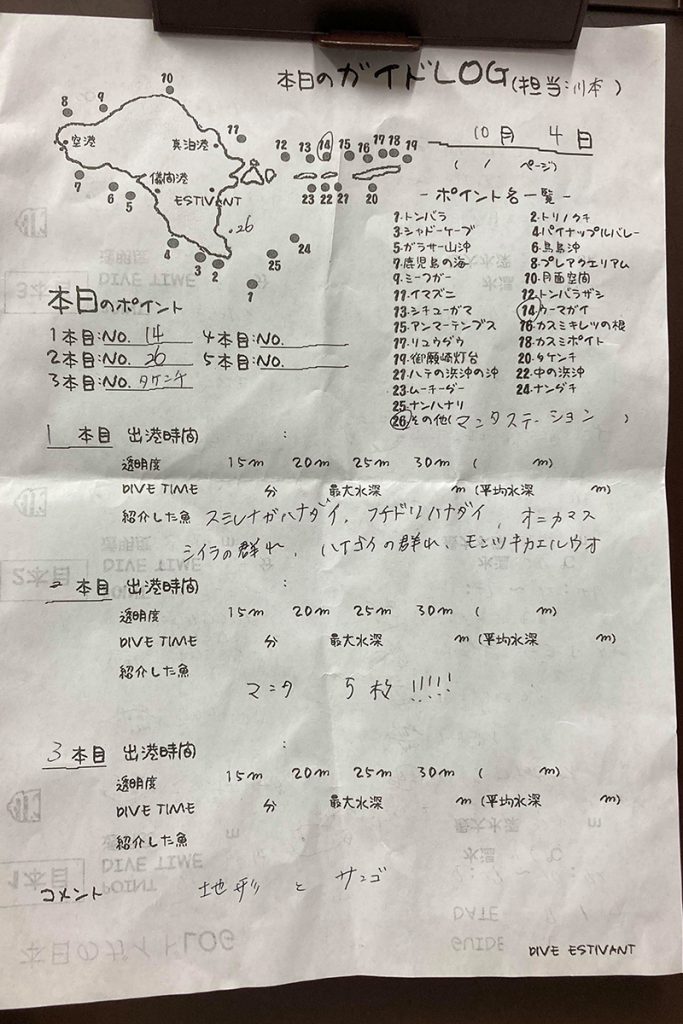 本日のガイドLOG(担当:川本)
10月 4日
( / ページ)
10
8 9
空港 真泊港 11
12 13 14 15 16 17 18 19
儀間港
7 6 5 ESTIVANT
23 22 21 20
26
24
4 3 2 25
1
-ポイント名一覧-
1.トンバラ 2.トリノクチ
3.シャドーケーブ 4.パイナップルバレー
5.ガラサー山沖 6.鳥島沖
7.鹿児島の海 8.プレアクエリアム
9.ミーフガー 10.月面空間
11.イマズニ 12.トンバラザシ
13.シチューガマ 14.ウーマガイ
15.アンマーテンブス 16.カスミキレツの根
17.リュウグウ 18.カスミポイント
19.御願崎灯台 20.タケンチ
21.ハテの浜沖の沖 22.中の浜沖
23.ムーチーグー 24.ナングチ
25.ナンハナリ
26.その他(マンタステーション )
本日のポイント
1本目:NO. 14 4本目:NO.
2本目:NO. 26 5本目:NO.
3本目:NO. タケンチ
1 本目 出港時間 :
透明度 15m 20m 25m 30m ( m)
DIVE TIME 分 最大水深 m (平均水深 m)
紹介した魚 スミレナガハナダイ, フチドリハナダイ, オニカマス
シイラの群れ, ハイゴイの群れ、モンツキカエルウオ
2 本目 出港時間 :
透明度 15m 20m 25m 30m ( m)
DIVE TIME 分 最大水深 m (平均水深 m)
紹介した魚
マンタ 5枚 !!!!!
3 本目 出港時間 :
透明度 15m 20m 25m 30m ( m)
DIVE TIME 分 最大水深 m (平均水深 m)
紹介した魚
コメント 地形 と サンゴ
DIVE ESTIVANT